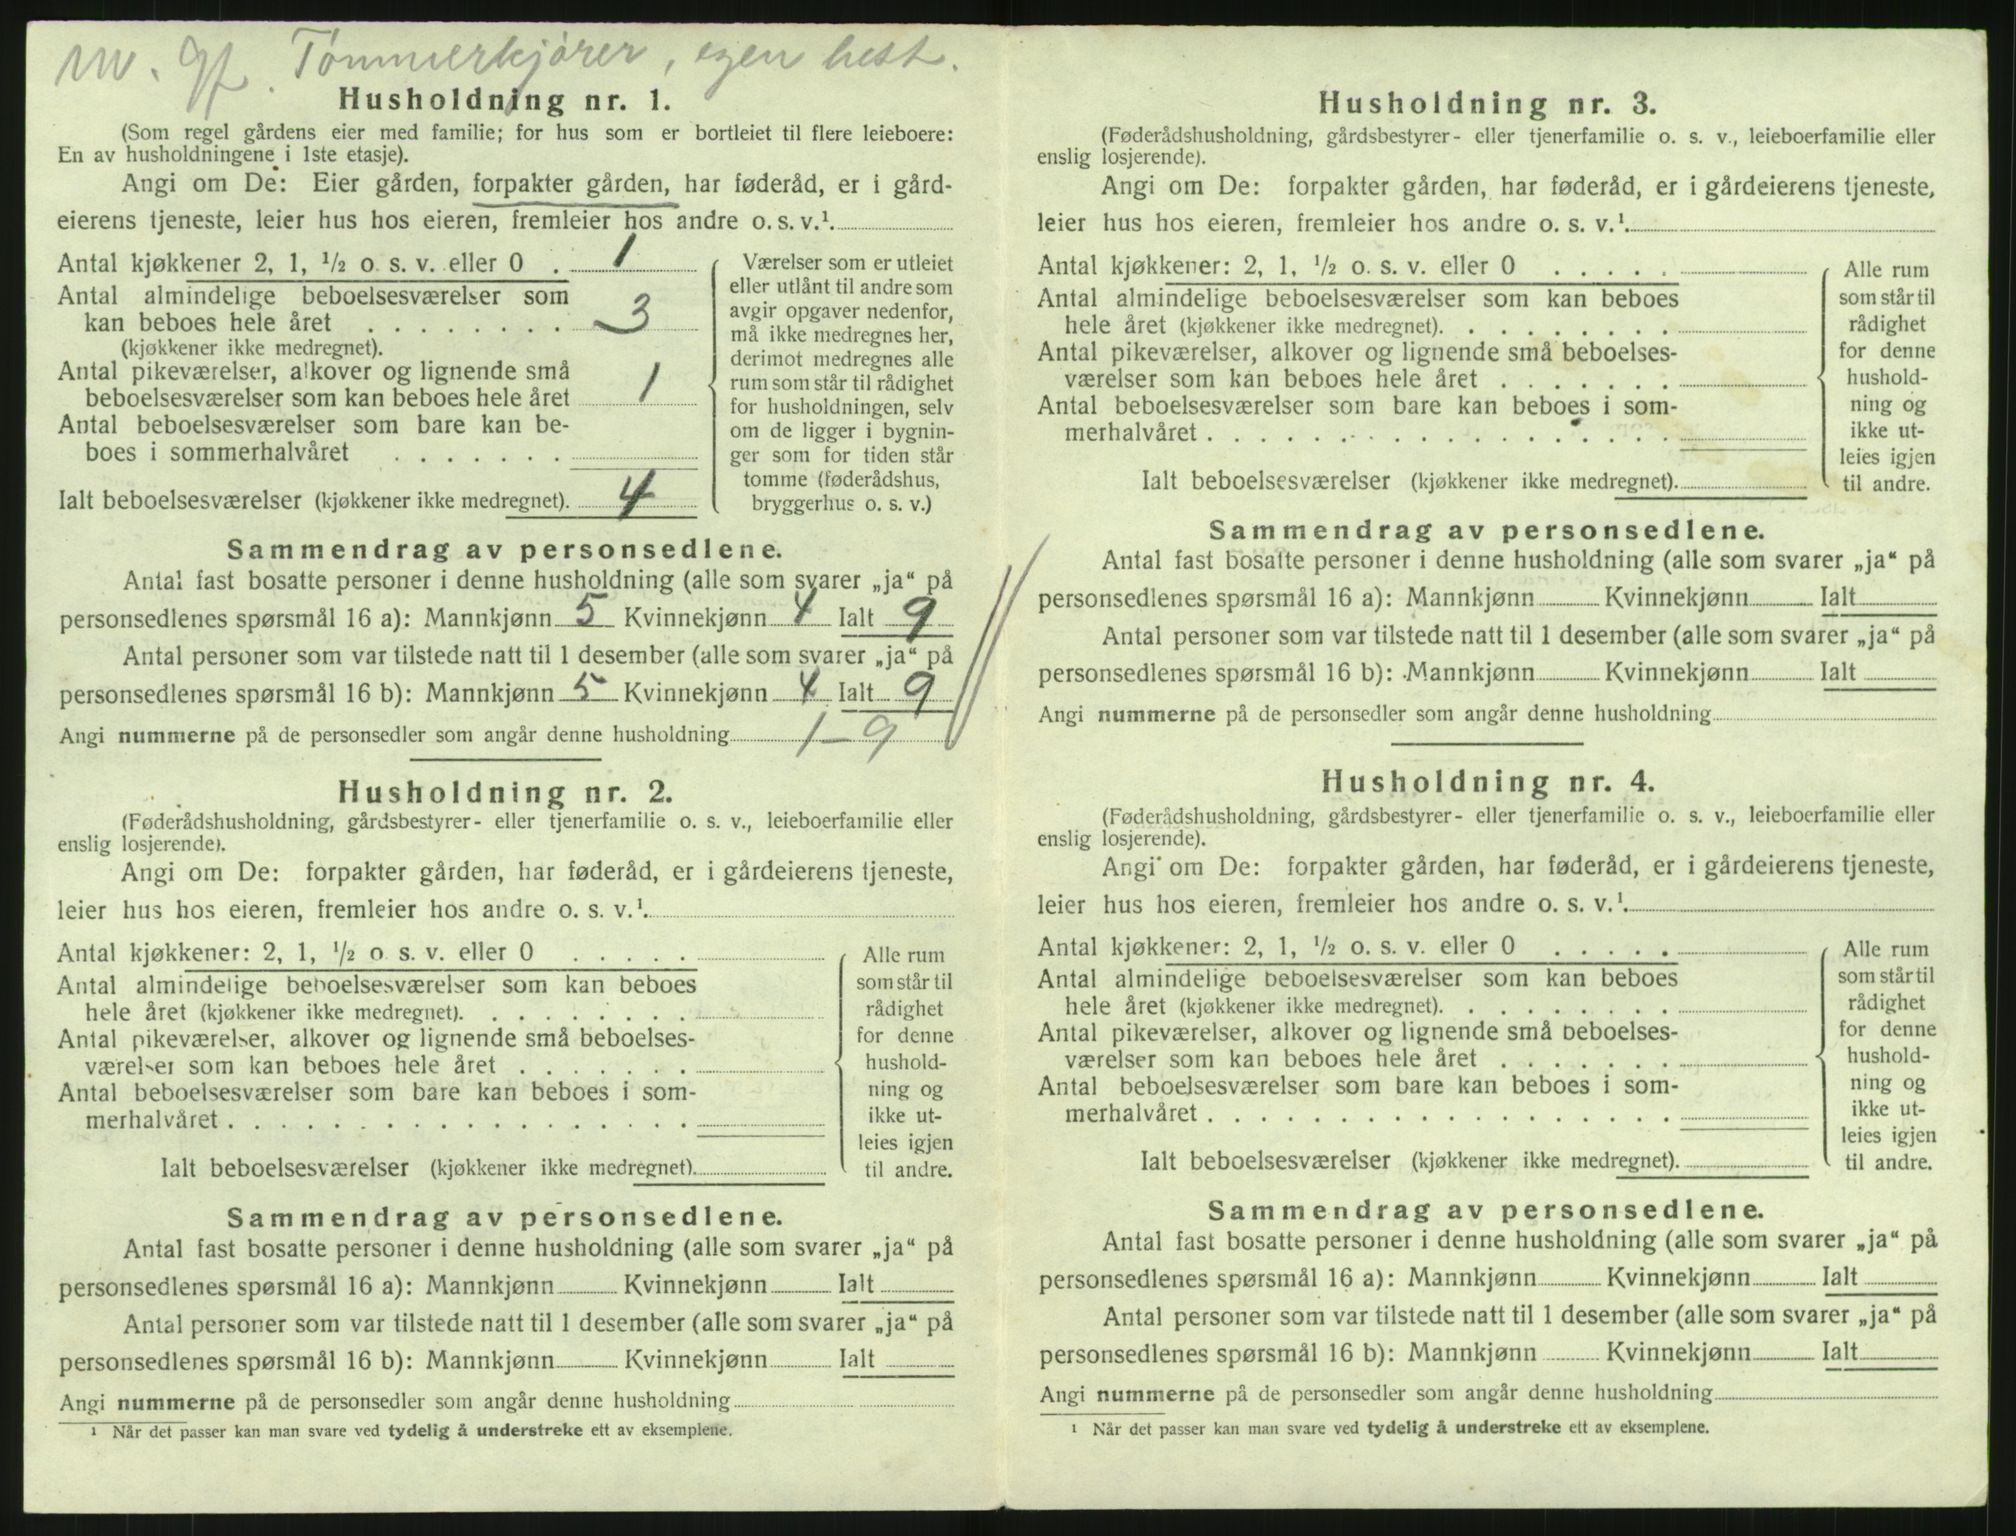 m. gf. Tømmerkjører, egen hest.
Husholdning nr. 1.
(Som regel gårdens eier med familie; for hus som er bortleiet til flere leieboere:
En av husholdningene i 1ste etasje).
Angi om De: Eier gården, forpakter gården, har føderåd, er i gård-
eierens tjeneste, leier hus hos eieren, fremleier hos andre o. s. v.¹.
Antal kjøkkener 2, 1, ¹/₂ o. s. v. eller 0 . 1
Antal almindelige beboelsesværelser som
kan beboes hele året . . . . . . . . 3
(kjøkkener ikke medregnet).
Antal pikeværelser, alkover og lignende små
beboelsesværelser som kan beboes hele året 1
Antal beboelsesværelser som bare kan be-
boes i sommerhalvåret . . . . . . .
Ialt beboelsesværelser (kjøkkener ikke medregnet). 4
Værelser som er utleiet
eller utlånt til andre som
avgir opgaver nedenfor,
må ikke medregnes her,
derimot medregnes alle
rum som står til rådighet
for husholdningen, selv
om de ligger i bygnin-
ger som for tiden står
tomme (føderådshus,
bryggerhus o. s. v.)
Sammendrag av personsedlene.
Antal fast bosatte personer i denne husholdning (alle som svarer „ja“ på
personsedlenes spørsmål 16 a): Mannkjønn 5 Kvinnekjønn 4 Ialt 9
Antal personer som var tilstede natt til 1 desember (alle som svarer „ja“ på
personsedlenes spørsmål 16 b): Mannkjønn 5 Kvinnekjønn 4 Ialt 9
Angi nummerne på de personsedler som angår denne husholdning 1-9
Husholdning nr. 2.
(Føderådshusholdning, gårdsbestyrer- eller tjenerfamilie o. s. v., leieboerfamilie eller
enslig losjerende).
Angi om De: forpakter gården, har føderåd, er i gårdeierens tjeneste,
leier hus hos eieren, fremleier hos andre o. s. v.¹.
Antal kjøkkener: 2, 1, ¹/₂ o. s. v. eller 0 . . . . .
Antal almindelige beboelsesværelser som kan beboes
hele året (kjøkkener ikke medregnet). . . . . . . . .
Antal pikeværelser, alkover og lignende små beboelses-
værelser som kan beboes hele året . . . . . . .
Antal beboelsesværelser som bare kan beboes i som-
merhalvåret . . . . . . . . . . . . . . . . . .
Ialt beboelsesværelser (kjøkkener ikke medregnet).
Alle rum
som står til
rådighet
for denne
hushold-
ning og
ikke ut-
leies igjen
til andre.
Sammendrag av personsedlene.
Antal fast bosatte personer i denne husholdning (alle som svarer „ja“ på
personsedlenes spørsmål 16 a): Mannkjønn Kvinnekjønn Ialt
Antal personer som var tilstede natt til 1 desember (alle som svarer „ja“ på
personsedlenes spørsmål 16 b): Mannkjønn Kvinnekjønn Ialt
Angi nummerne på de personsedler som angår denne husholdning
¹ Når det passer kan man svare ved tydelig å understreke ett av eksemplene.
Husholdning nr. 3.
(Føderådshusholdning, gårdsbestyrer- eller tjenerfamilie o. s. v., leieboerfamilie eller
enslig losjerende).
Angi om De: forpakter gården, har føderåd, er i gårdeierens tjeneste,
leier hus hos eieren, fremleier hos andre o. s. v.¹.
Antal kjøkkener: 2, 1, ¹/₂ o. s. v. eller 0 . . . . .
Antal almindelige beboelsesværelser som kan beboes
hele året (kjøkkener ikke medregnet). . . . . . . . .
Antal pikeværelser, alkover og lignende små beboelses-
værelser som kan beboes hele året . . . . . . .
Antal beboelsesværelser som bare kan beboes i som-
merhalvåret . . . . . . . . . . . . . . . . . .
Ialt beboelsesværelser (kjøkkener ikke medregnet).
Alle rum
som står til
rådighet
for denne
hushold-
ning og
ikke ut-
leies igjen
til andre.
Sammendrag av personsedlene.
Antal fast bosatte personer i denne husholdning (alle som svarer „ja“ på
personsedlenes spørsmål 16 a): Mannkjønn Kvinnekjønn Ialt
Antal personer som var tilstede natt til 1 desember (alle som svarer „ja“ på
personsedlenes spørsmål 16 b): Mannkjønn Kvinnekjønn Ialt
Angi nummerne på de personsedler som angår denne husholdning
Husholdning nr. 4.
(Føderådshusholdning, gårdsbestyrer- eller tjenerfamilie o. s. v., leieboerfamilie eller
enslig losjerende).
Angi om De: forpakter gården, har føderåd, er i gårdeierens tjeneste,
leier hus hos eieren, fremleier hos andre o. s. v.¹.
Antal kjøkkener: 2, 1, ¹/₂ o. s. v. eller 0 . . . . .
Antal almindelige beboelsesværelser som kan beboes
hele året (kjøkkener ikke medregnet). . . . . . . . .
Antal pikeværelser, alkover og lignende små beboelses-
værelser som kan beboes hele året . . . . . . .
Antal beboelsesværelser som bare kan beboes i som-
merhalvåret . . . . . . . . . . . . . . . . . .
Ialt beboelsesværelser (kjøkkener ikke medregnet).
Alle rum
som står til
rådighet
for denne
hushold-
ning og
ikke ut-
leies igjen
til andre.
Sammendrag av personsedlene.
Antal fast bosatte personer i denne husholdning (alle som svarer „ja“ på
personsedlenes spørsmål 16 a): Mannkjønn Kvinnekjønn Ialt
Antal personer som var tilstede natt til 1 desember (alle som svarer „ja“ på
personsedlenes spørsmål 16 b): Mannkjønn Kvinnekjønn Ialt
Angi nummerne på de personsedler som angår denne husholdning
¹ Når det passer kan man svare ved tydelig å understreke ett av eksemplene.